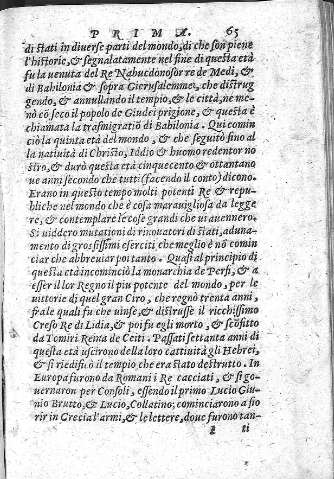 PRIMA. 65
di stati in diuerse parti del mondo, di che son piene
l'historie, & segnalatamente nel fine di questa età
fu la uenuta del Re Nabucdonosor re de Medi, &
di Babilonia & sopra Gierusalemme, che distrug
gendo, & annullando il tempio, & le città, ne me-
nò cō seco il popolo de Giudei prigione, & questa è
chiamata la trasmigratiō di Babilonia. Qui comin
ciò la quinta età del mondo, & che seguitò sino al
la natiuità di Christo, Iddio & huomo redentor no
stro, & durò questa età cinquecento & ottantano
ue anni secondo che tutti (facendo il conto) dicono.
Erano in questo tempo molti potenti Re & repu-
bliche nel mondo che è cosa marauigliosa da legge
re, & contemplare le cose grandi che ui auennero.
Si uiddero mutationi di rinouatori di stati, aduna-
mento di grossissimi eserciti che meglio è nō comin
ciar che abbreuiar poi tanto. Quasi al principio di
questa età incominciò la monarchia de Persi, & a
esser il lor Regno il piu potente del mondo, per le
uittorie di quel gran Ciro, che regnò trenta anni,
fra le quali fu che uinse, & distrusse il ricchissimo
Creso Re di Lidia, & poi fu egli morto, & scōfitto
da Tomiri Reina de Citi. Passati settanta anni di
questa età uscirono della loro cattiuità gli Hebrei,
& si riedificò il tempio che era stato destrutto. In
Europa furono da Romani i Re cacciati, & si go-
uernaron per Consoli, essendo il primo Lucio Giu-
nio Brutto, & Lucio, Collatino; cominciarono a fio
rir in Grecia l'armi, & le lettere, doue furono tan-
ti